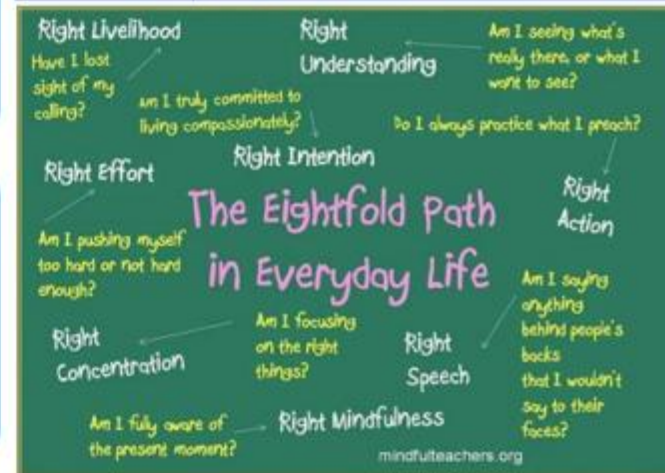 Right Livelihood
Have I lost
sight of my
calling?
Right
Understanding
Am I seeing what's
really there, or what I
want to see?
Am I truly committed to
living compassionately?
Right Intention
Do I always practice what I preach?
Right
Action
Right Effort
Am I pushing myself
too hard or not hard
enough?
The Eightfold Path
in Everyday Life
Right
Concentration
Am I focusing
on the right
things?
Right
Speech
Am I saying
anything
behind people's
backs
that I wouldn't
say to their
faces?
Am I fully aware of
the present moment?
Right Mindfulness
mindfulteachers.org